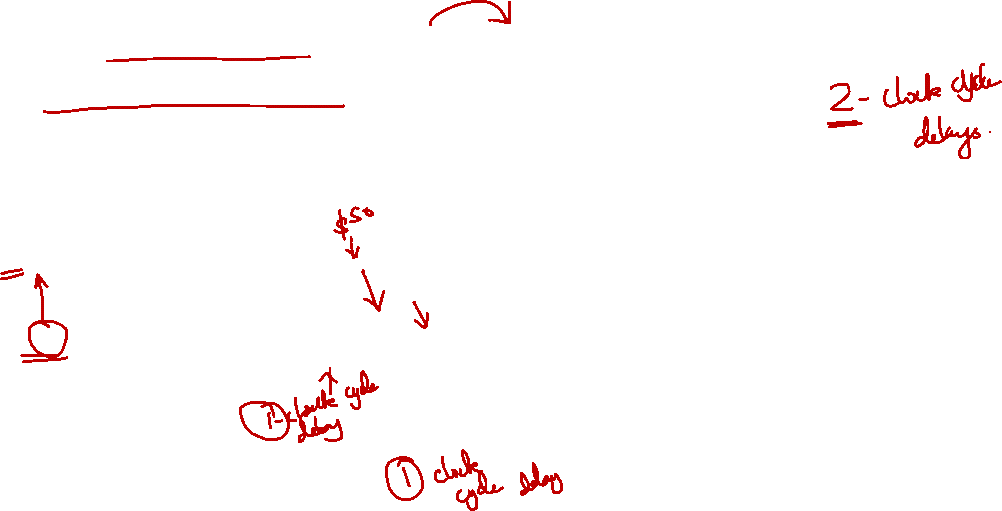 2- clock cycle
delays.
$50
1- clock cycle
delay
1 clock
cycle delay